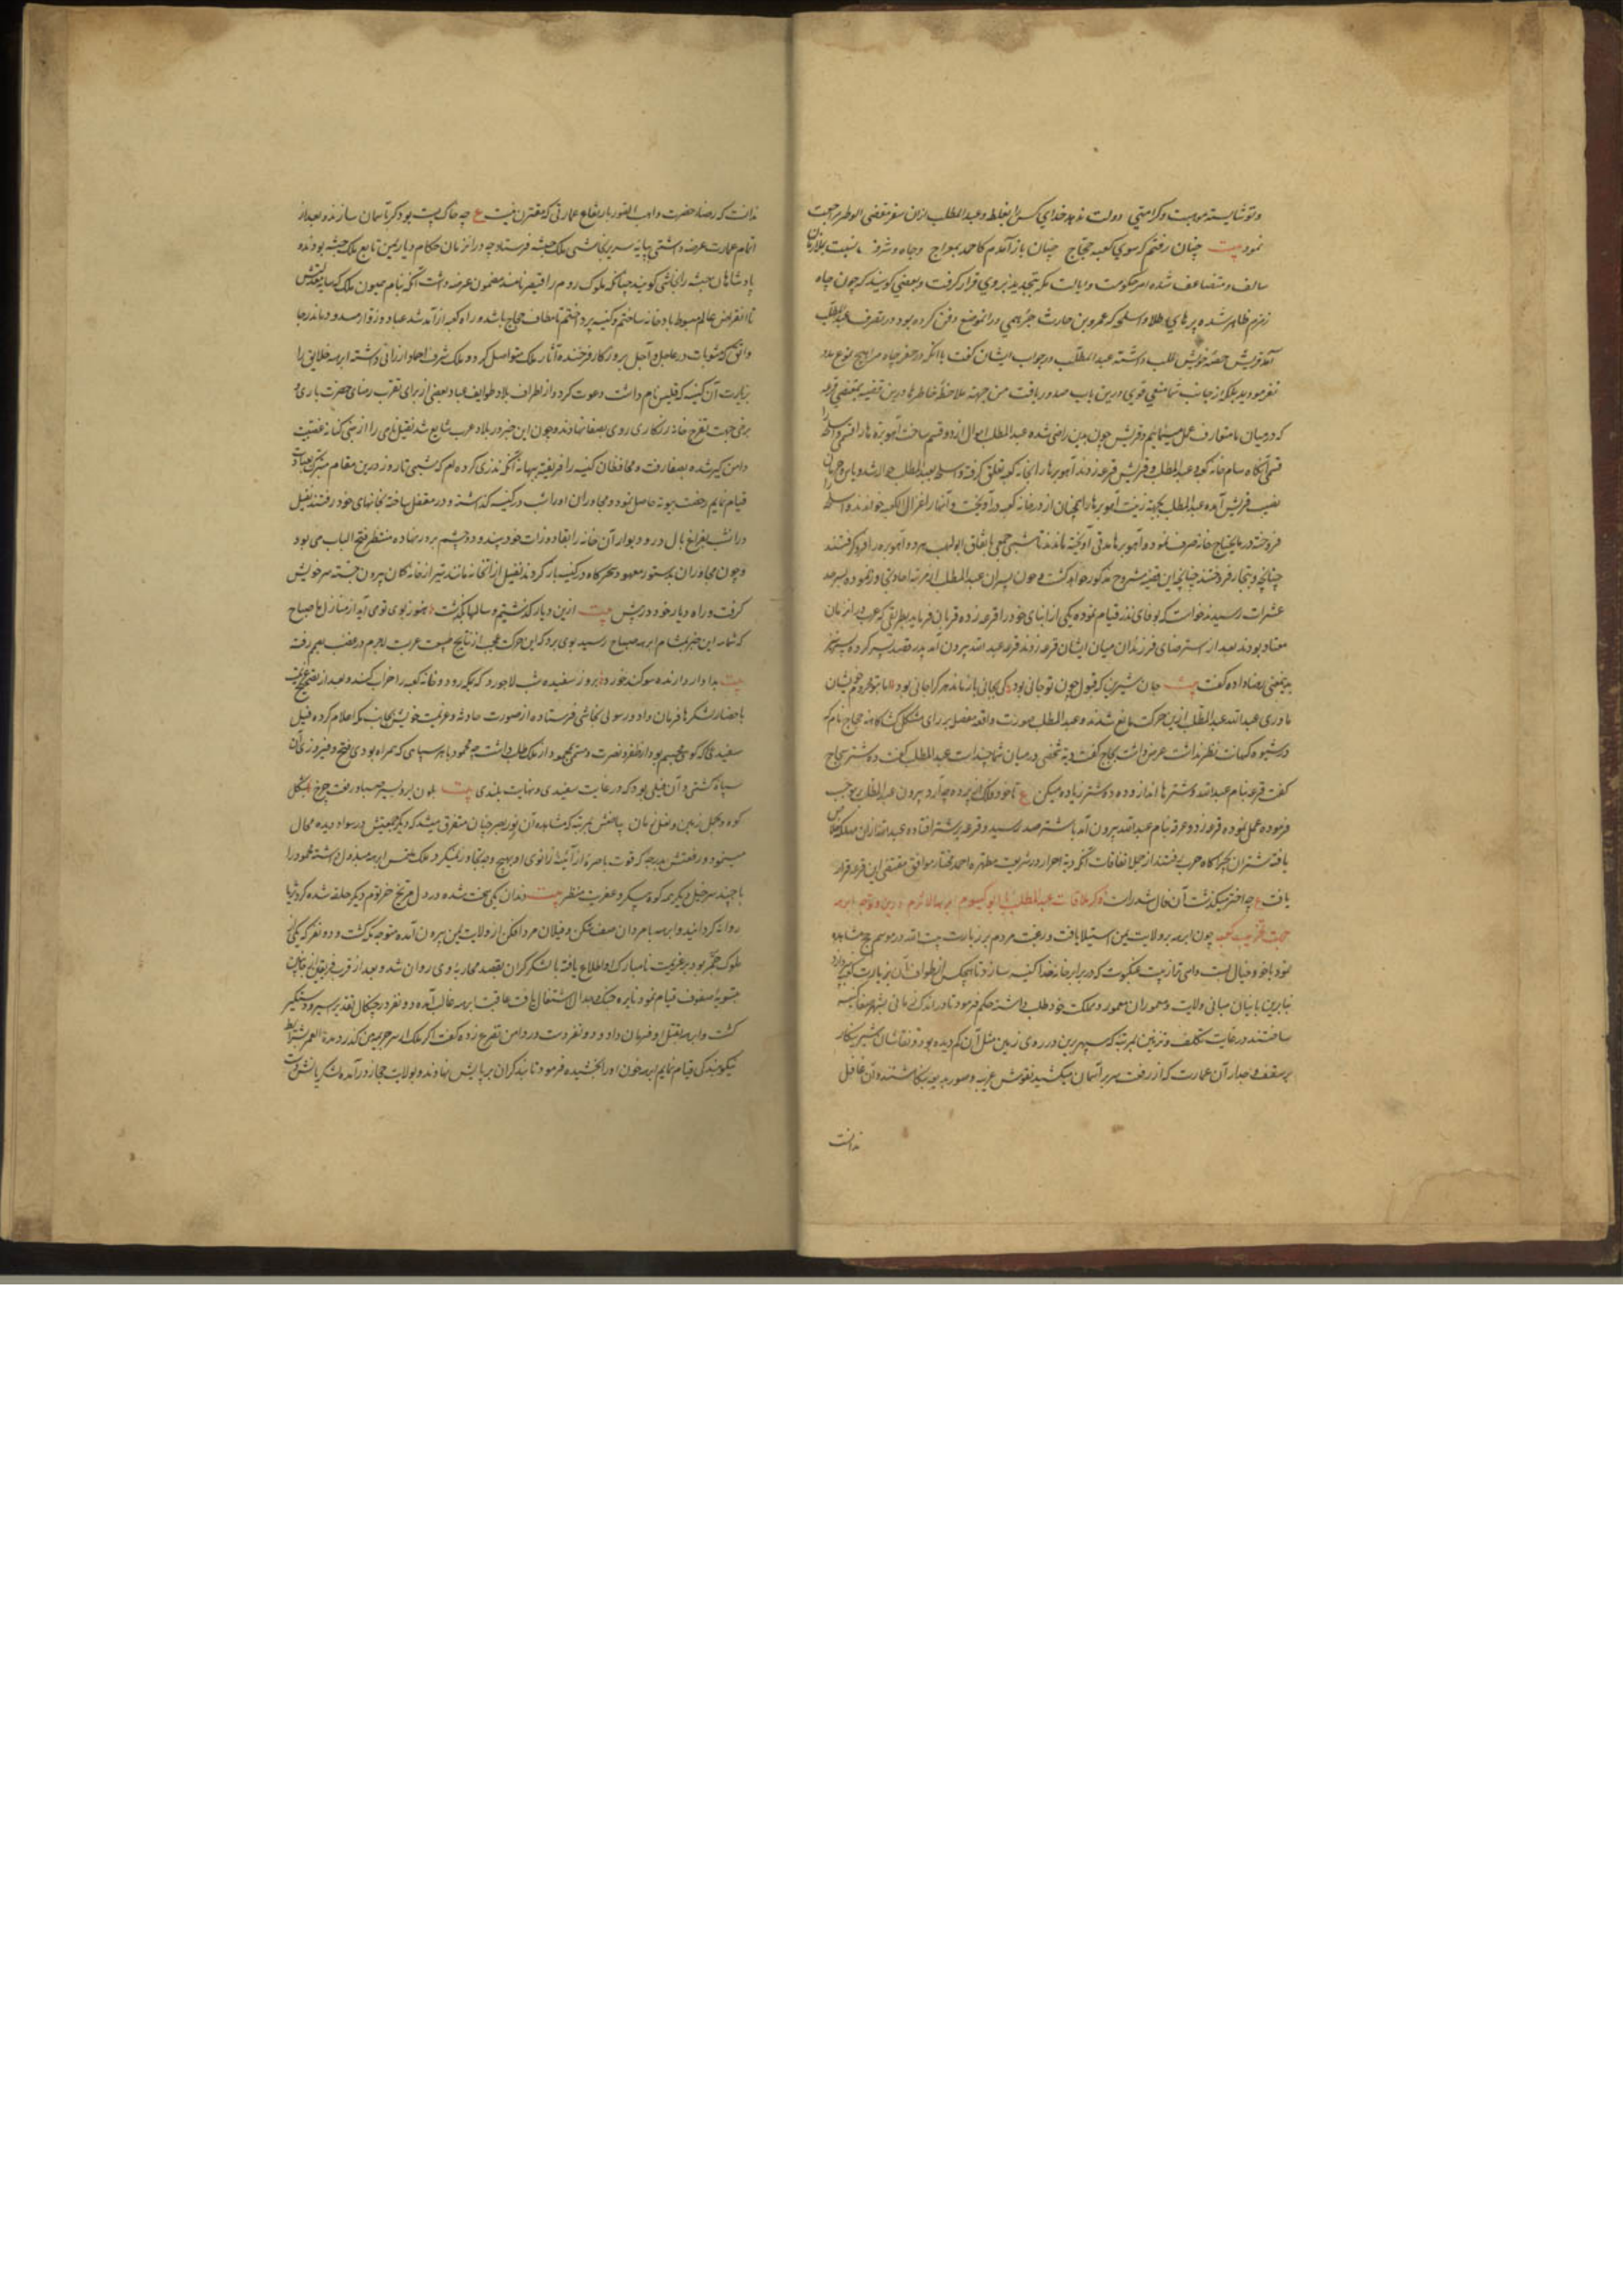 و تو شایسته موهبت و کرامتی دولت ندهد خدای کس را بغلط و عبدالمطلب ازان سفر مقضی الوطر مراجعت
نمود بیت چنان رفتم که سوی کعبه حجاج چنان باز آمدم کاحمد بمعراج و جاه و شرف نسبت بازمان
سالف متضاعف شده امر حکومت و ایالت مکه بتجدید بروی قرار گرفت و بعضی گویند که چون چاه
زمزم ظاهر شده طلا و اسلحه که عمرو بن حارث جرهمی در انموضع دفن کرده بود در تصرف عبدالمطلب
آمد قریش حصه خویش طلب داشته عبدالمطلب در جواب ایشان گفت با آنکه در حفر چاه مرا هیچ نوع مدد
نفرمودید بلکه از جانب شما منعی قوی درین باب صدور یافت من جهة ملاحظه خاطرها درین قضیه بمقتضی قرعه
که در میان ما متعارف عمل مینمایم و قریش چون بدین راضی شده عبدالمطلب اموال را دو قسم ساخت آهوبره ها را قسمی و اسلحه را
قسمی آنگاه بنام خانه کعبه و عبدالمطلب و قریش قرعه زدند آهوبرها را بخانه کعبه تعلق گرفته و اسلحه بعبدالمطلب حواله شد
نصیب قریش آمده عبدالمطلب بجهة زینت آهوبرها را همچنان از در خانه کعبه در آویخت و آنها را غزال الکعبه خواندند و اسلحه را
فروخته در مایحتاج خانه صرف نمود و آهوبرها مدتی آویخته ماندند تا شبی جمعی باتفاق ابولهب هر دو آهوبره را فرو گرفتند
چنانچه و بتجار فروختند چنانچه این قضیه مشروح مذکور خواهد گشت و چون پسران عبدالمطلب از مرتبه احاد ترقی نموده بسرحد
عشرات رسیدند خواست که بوفای نذر قیام نموده یکی از ابنای خود را قرعه زده قربان فرماید بطریقی که عرب در آنزمان
معتاد بودند بعد از استرضای فرزندان میان ایشان قرعه زدند قرعه عبدالله بیرون آمد پدر قصد پسر کرده پسر نیز
بدینمعنی رضا داده گفت بیت جان شیرین که قبول چون تو جانی بود کی بجانی باز ماند هر کرا جانی بود اما بنو مخزوم خویشان
مادری عبدالله عبدالمطلب را ازین حرکت مانع شدند و عبدالمطلب صورت واقعه مفصل بر رای مشکل گشا کاهنه حجاج نام که
در شیوه کهانت نظیر نداشت عرضه داشت سجاح گفت دیه شخصی در میان شما چند است عبدالمطلب گفت ده شتر سجاح
گفت قرعه بنام عبدالله و شترها انداز و ده ده شتر زیاده میکن ع تا خود فلک از پرده چه آرد بیرون عبدالمطلب بموجب
فرموده عمل نموده قرعه زد و هر قرعه بنام عبدالله بیرون آمد تا شتر بصد رسید و قرعه بر شتر افتاده عبدالله ازان مهلکه خلاص
یافته شتران بچراگاه حرب رفتند از جمله اتفاقات آنکه دیه احرار در شریعت مطهره احمد مختار موافق مقتضی این قرعه قرار
یافت ع چه اختر میگذشت آن فال شد راست ذکر ملاقات عبدالمطلب با ابویکسوم ابرهة الاشرم و توجه ابرهه
جهت تخریب کعبه چون ابرهه بر ولایت یمن استیلا یافت و رغبت مردم بر زیارت بیت الله در موسم حج مشاهده
نمود با خود خیال بست واهی تر از بیت عنکبوت که در برابر خانه خدا کنیسه سازد تا هیچکس از طواف آن بزیارت کعبه نپردازد
بنابرین بانیان مبانی ولایت و معموران معموره مملکت خود طلب داشته حکم فرمود تا در اندک زمانی بشهر صنعا کنیسه
ساختند در غایت تکلف و تزیین بمرتبه که سپهر برین در روی زمین مثل آن کم دیده بود و نقاشان شیرین کار
بر سقف و جدار آن عمارت که از رفعت سر بر آسمان میکشید نقوش غریبه و صور بدیعه بنگاشتند و آن غافل
ندانست
ندانست که رضای حضرت واهب الصور بارتفاع عمارتی که مقترن نیست ع چه حاکست بود کر تا آسمان سازند و بعد از
اتمام عمارت عرضه داشتی بپایه سریر نجاشی ملک حبشه فرستاد چه در انزمان حکام دیار یمن تابع ملک حبشه بودند و
پادشاهان حبشه را نجاشی گویند چنانکه ملوک روم را قیصر نامند مضمون عرضه داشت آنکه بنام میمون ملک که سایه دولتش
تا انقراض عالم مبسوط باد خانه ساختم و کنیسه پرداختم تا مطاف حجاج باشد و راه کعبه از آمد شد عباد و زوار مسدود ماند رجا
واثق که مثوبات در عاجل و آجل بروزگار فرخنده آثار ملک متواصل گردد و ملک شرف احماد ارزانی داشته ابرهه خلایق را
بزیارت آن کنیسه که قلیس نام داشت دعوت کرد و از اطراف بلاد طوایف عباد بعضی از برای تقرب رضای حضرت باری و
برخی جهت تفرج خانه زرنگاری روی بصنعا نهادند و چون این خبر در بلاد عرب شایع شد نفیل نامی را از بنی کنانه عصبیت
دامن گیر شده بصنعا رفت و محافظان کنیسه را فریفته ببهانه آنکه نذری کرده ام که شبی تا روز درین مقام متبرک بعبادت
قیام نمایم رخصت بیتوته حاصل نمود و مجاوران او را شب در کنیسه گذاشته و در مقفل ساخته بخانهای خود رفتند نفیل
در آنشب بفراغ بال در و دیوار آن خانه را بقاذورات خود بیندود و چشم بر در نهاده منتظر فتح الباب می بود
و چون مجاوران بدستور معهود سحرگاه در کنیسه باز کردند نفیل از آنخانه مانند تیر از خانه کمان بیرون جسته سر خویش
گرفت و راه دیار خود در پیش بیت ازین دیار گذشتیم و سالها بگذشت هنوز بوی تو می آید از منازل ما صباح
که شامه این خبر بمشام ابرهه صباح رسید بوی برد که این حرکت عجب از نتایج خبث عرب لاجرم در غضب رفته
بیت بدادار دارنده سوگند خورد بروز سفید و شب لاجورد که بمکه رود و خانه کعبه را خراب کند و بعد از تصمیم عزیمت
باحضار لشکرها فرمان داد و رسولی بنجاشی فرستاده از صورت حادثه و عزیمت خویش بجانب مکه اعلام کرده فیل
سفیدی که گویی مجسم بود از ظفر و نصرت و مسمی بمحمود از ملک طلب داشت چه محمود با هر سپاهی که همراه بودی فتح و فیروزی آن
سپاه گشتی و آن فیلی بود که در غایت سفیدی و نهایت بلندی بیت بلون ابر و بسیر صبا و رفعت چرخ بشکل
کوه و بحبل زمین و فعل زمان بیاضش بمرتبه که بمشاهده آن نور بصر چنان متفرق میشد که دیگر جمعیتش در سواد دیده محال
مینمود و رفعتش بدرجه که قوت باصره از آینه زانوی او بهیچ وجه تجاوز نمیکرد و ملک ملتمس ابرهه مبذول داشته محمود را
با چند سر خیل دیگر همه کوه پیکر و عفریت منظر بیت دندان یکی سخت شده در دل مریخ خرطوم دیگر حلقه شده گرد ثریا
روانه گردانید و ابرهه با مردان صف شکن و فیلان مرد افکن از ولایت یمن بیرون آمده متوجه مکه گشت و دو نفر که یکی از
ملوک حمیر بود بر عزیمت نامبارک او اطلاع یافته با لشکر گران بقصد محاربه وی روان شد و بعد از قرب فریقین از جانبین
بتسویه صفوف قیام نمود نایره جنگ و جدال اشتعال یافت عاقبت ابرهه غالب آمده دو نفر در چنگال تقدیر اسیر و دستگیر
گشت و ابرهه بقتل او فرمان داد و دو نفر دست در دامن تضرع زده گفت اگر ملک از سر جریمه من گذرد مدة العمر بشرایط
نیکو بندگی قیام نمایم ابرهه خون او را بخشیده فرمود تا بند گران بر پایش نهادند و بولایت حجاز در آمده لشکریانش